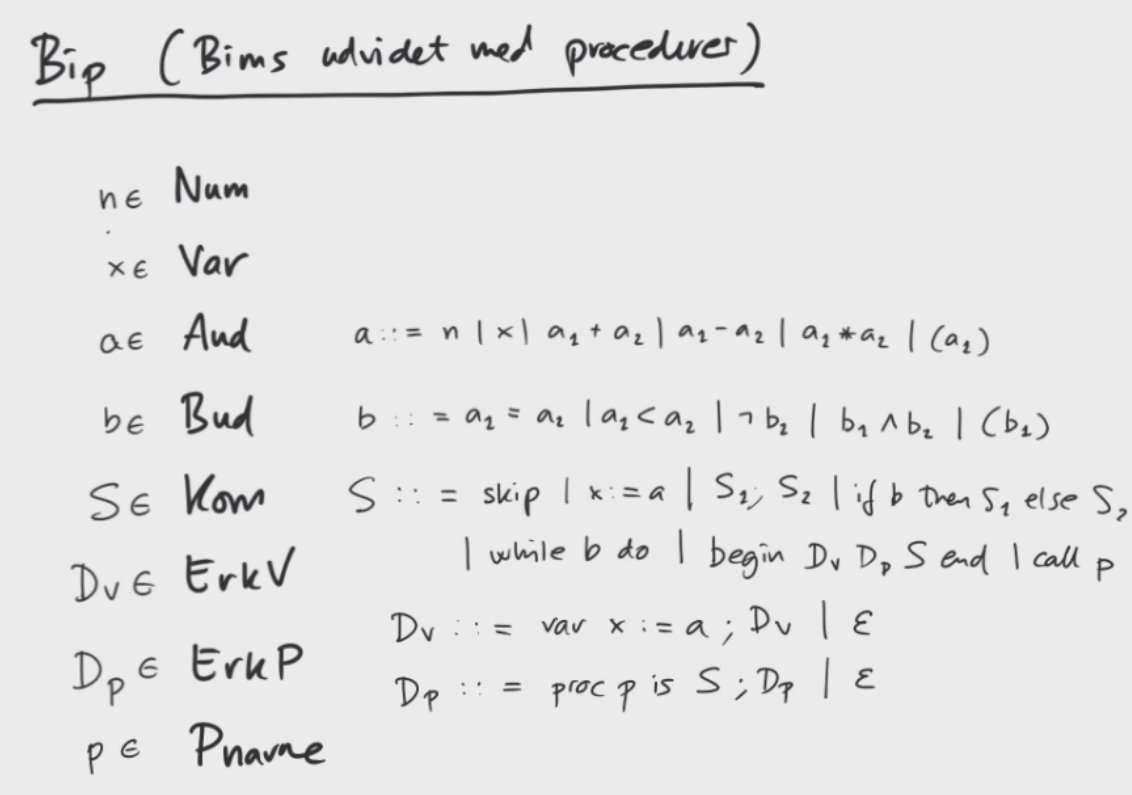 Bip (Bims udvidet med procedurer)
n ∈ Num
x ∈ Var
a ∈ Aud a ::= n | x | a₁ + a₂ | a₁ - a₂ | a₁ * a₂ | (a₁)
b ∈ Bud b ::= a₁ = a₂ | a₁ < a₂ | ¬ b₁ | b₁ ∧ b₂ | (b₁)
S ∈ Kom S ::= skip | x := a | S₁; S₂ | if b then S₁ else S₂
| while b do | begin Dᵥ Dₚ S end | call p
Dᵥ ∈ ErkV
Dᵥ ::= var x := a ; Dᵥ | ε
Dₚ ∈ ErkP
Dₚ ::= proc p is S ; Dₚ | ε
p ∈ Pnavne